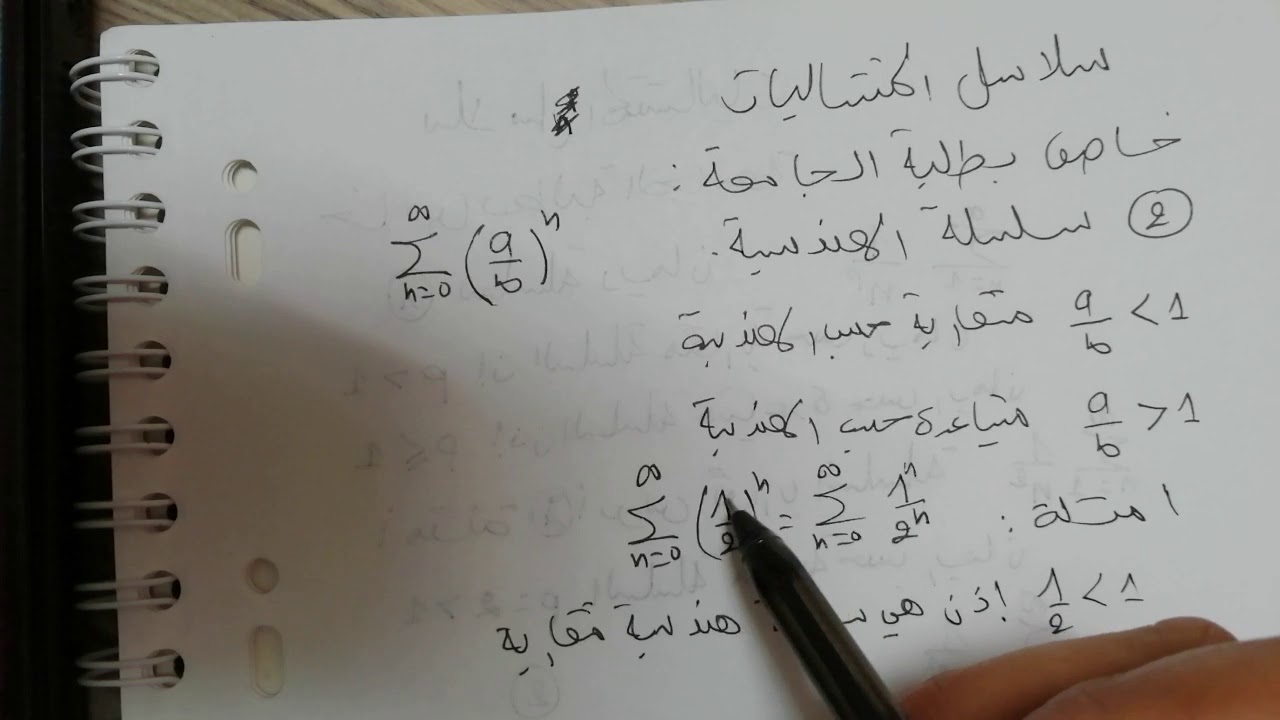 سلاسل المتتاليات
خاص بطلبة الجامعة :
② سلسلة الهندسية . ∑_{n=0}^{∞} (a/b)^n
a/b < 1 متقاربة حسب الهندسية
a/b > 1 متباعدة حسب الهندسية
امثلة : ∑_{n=0}^{∞} (1/2)^n = ∑_{n=0}^{∞} 1^n/2^n
1/2 < 1 إذن هي هندسية متقاربة